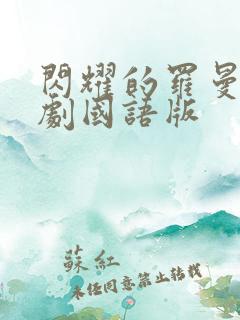 閃耀的羅曼
劇國語版
蘇紅
未任同意禁止转载